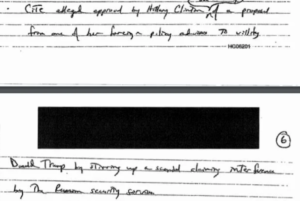 • CITE alleged approval by Hillary Clinton of a proposal
from one of her foreign policy advisors to vilify
6
Donald Trump by stirring up a scandal claiming interference
by The Russian security service